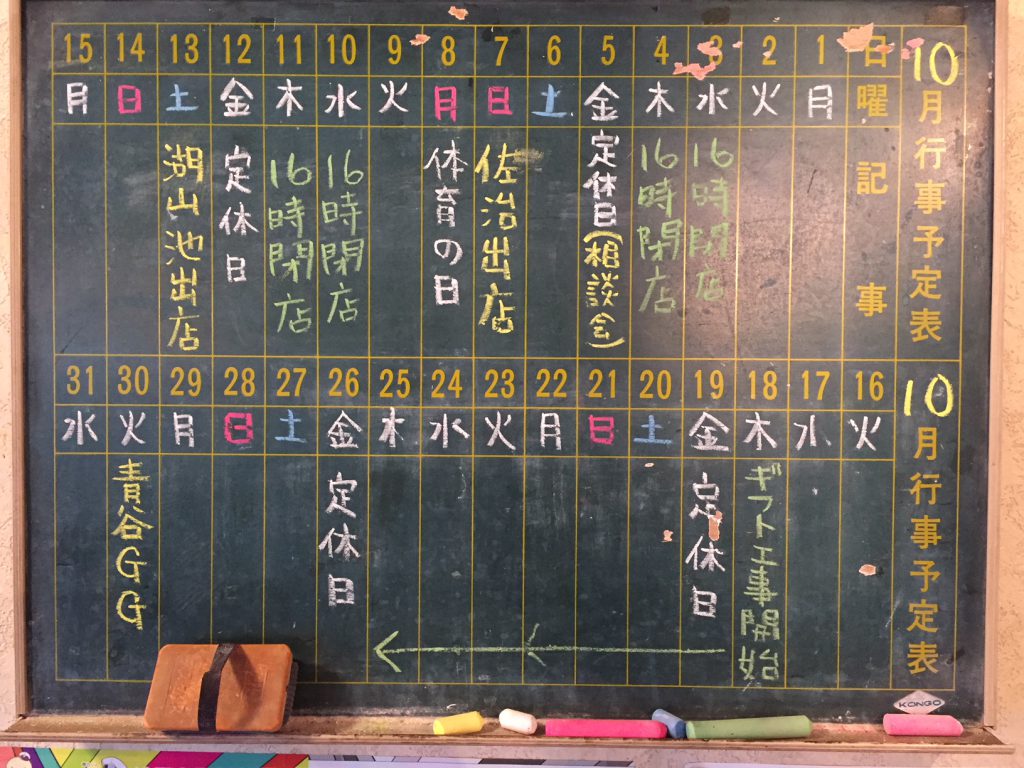 10月行事予定表
日 曜 記事
1 月
2 火
3 水 16時閉店
4 木 16時閉店
5 金 定休日(相談会)
6 土
7 日 佐治出店
8 月 体育の日
9 火
10 水 16時閉店
11 木 16時閉店
12 金 定休日
13 土 湖山池出店
14 日
15 月
10月行事予定表
16 火
17 水
18 木 ギフト工事開始
19 金 定休日
20 土
21 日
22 月
23 火
24 水
25 木
26 金 定休日
27 土
28 日
29 月
30 火 青谷GG
31 水
KONGO